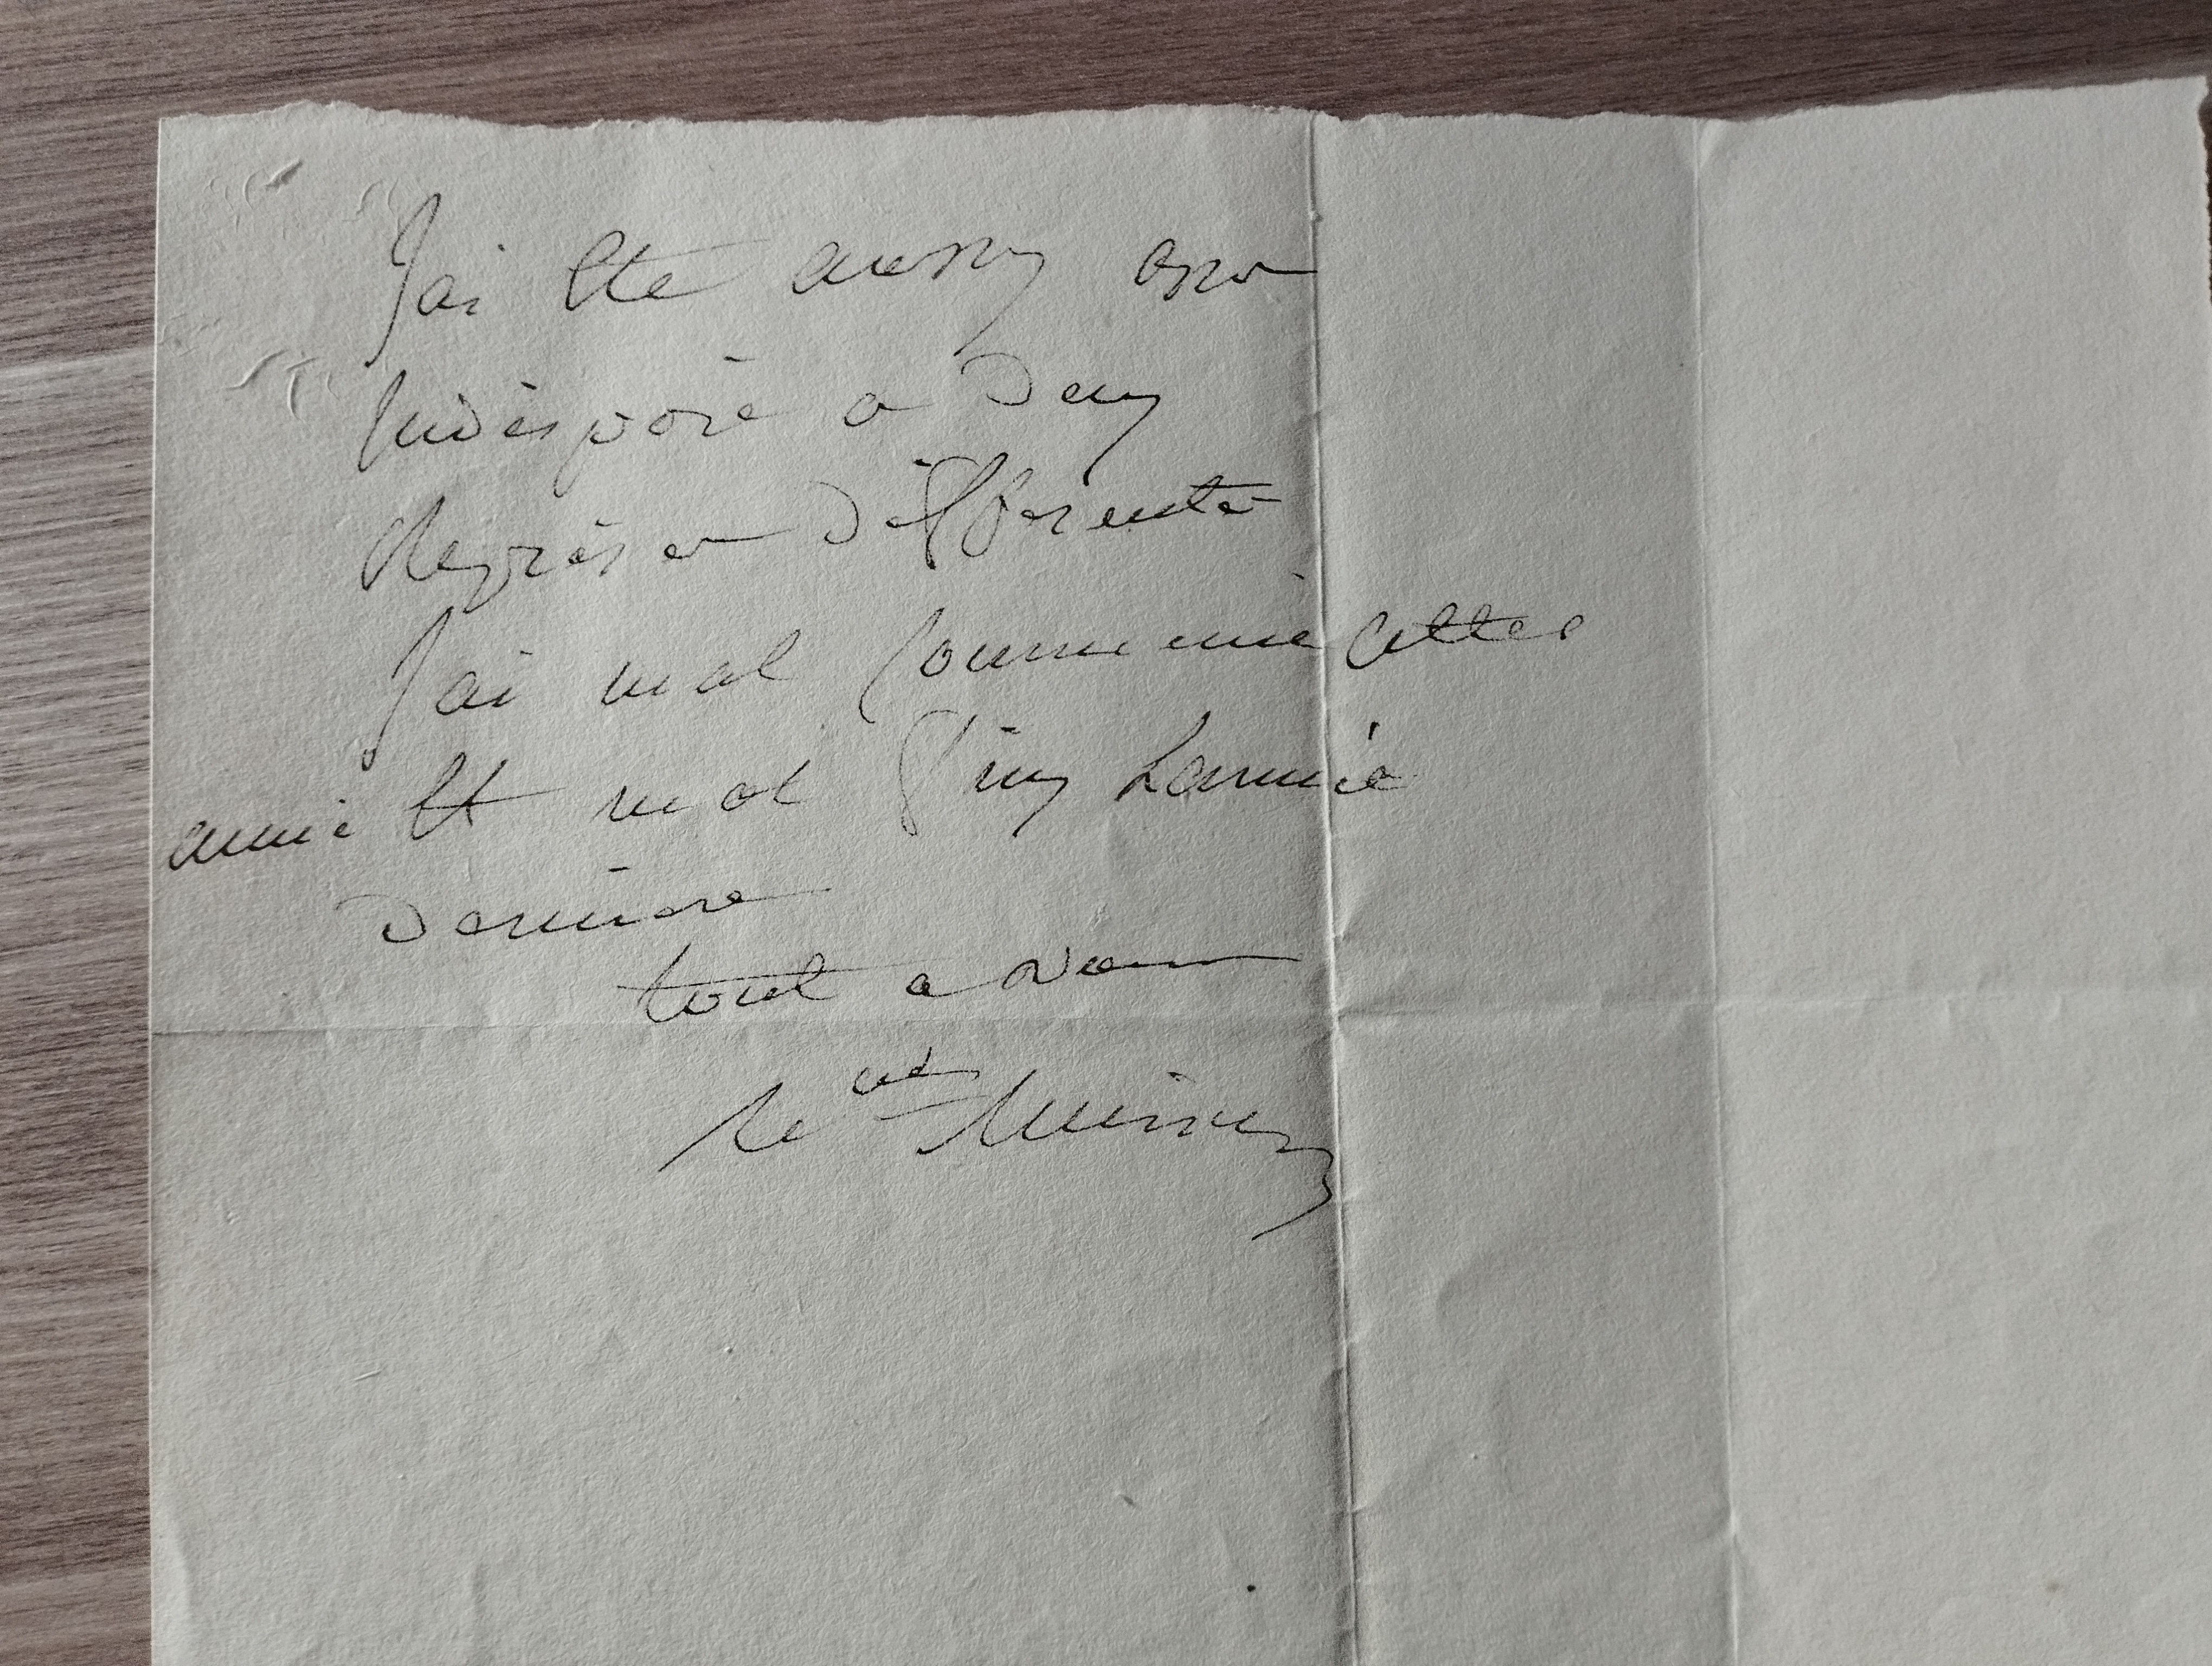 J'ai été aussy
Indisposé a deux
Reprises différente
J'ai mal Commencé cette
anné Et mal finy L'année
Dernière
tout a vous
le